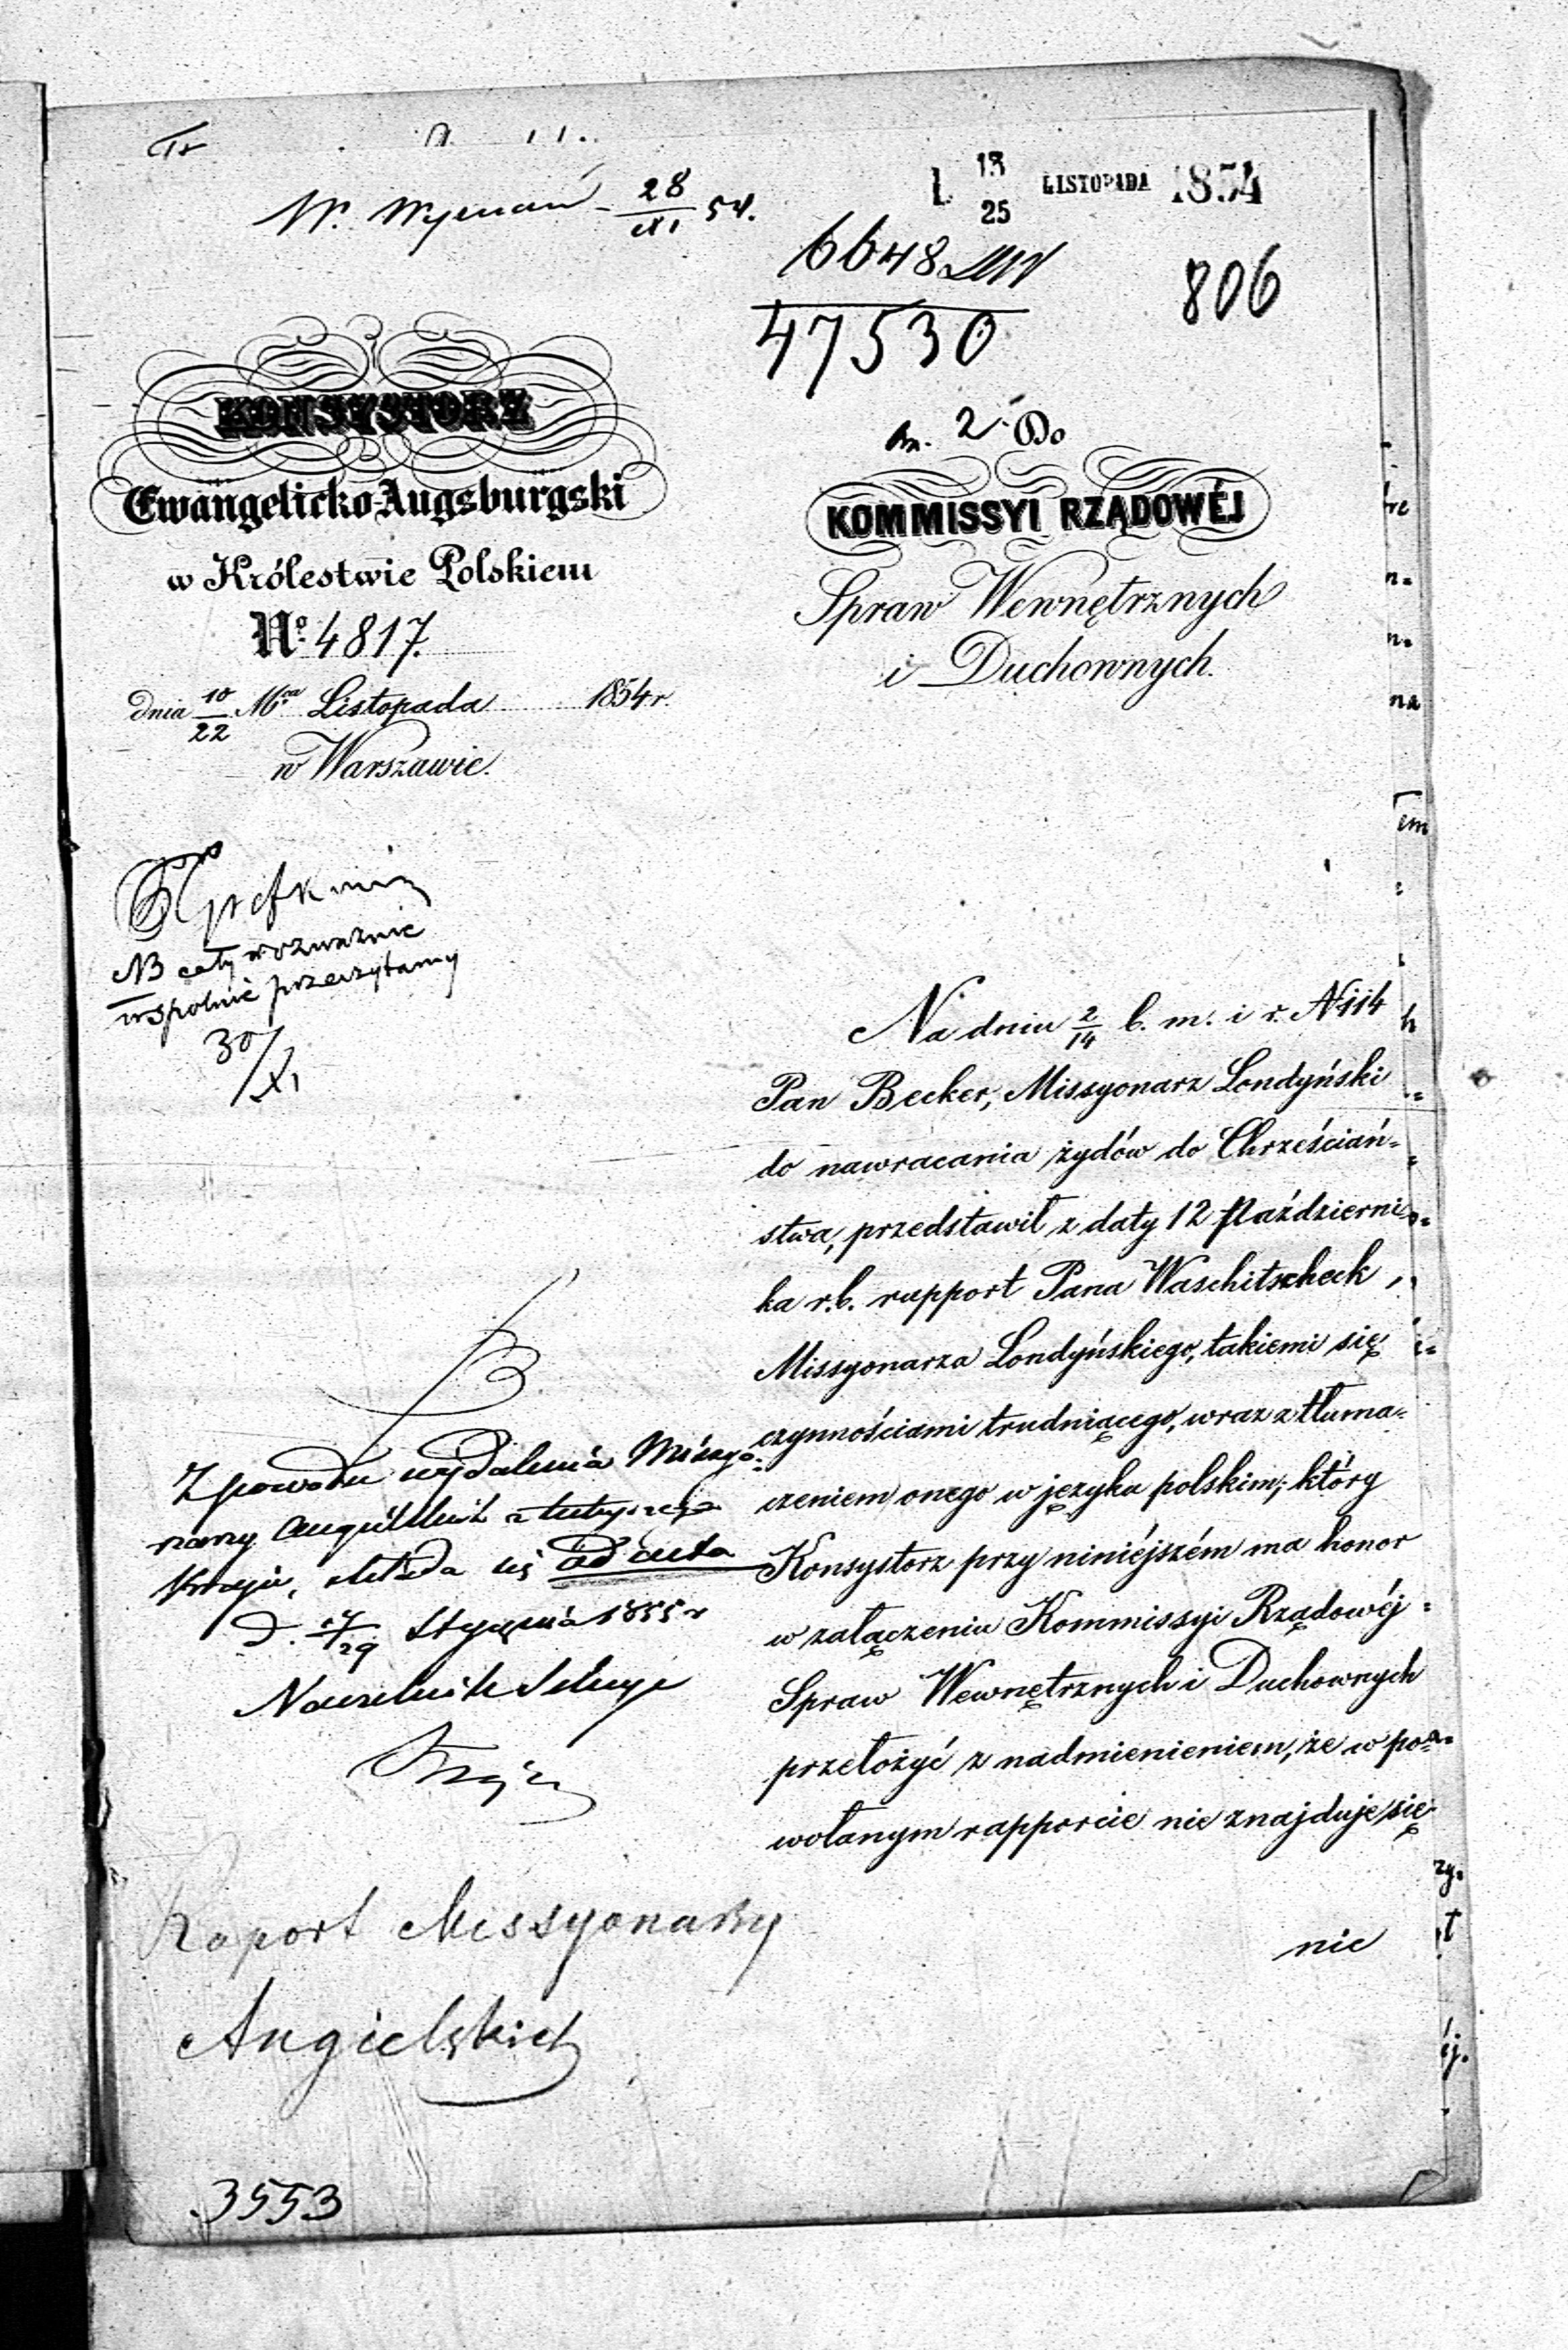 28/XI 54.
L 13/25 LISTOPADA 1854
6648
47530
806
KONSYSTORZ
Ewangelicko Augsburgski
w Królestwie Polskiem
No. 4817.
dnia 10/22 Mca Listopada 1854 r.
w Warszawie.
2. Do
KOMMISSYI RZĄDOWÉJ
Spraw Wewnętrznych
i Duchownych.
NB cały rozważnie
wspolnie przeczytamy
30/XI
Na dniu 2/14 b. m. i r. N 114
Pan Becker, Missyonarz Londyński
do nawracania żydów do Chrześciań=
stwa, przedstawił z daty 12 Październi=
ka r.b. rapport Pana Waschitscheck,
Missyonarza Londyńskiego, takiemi się
czynnościami trudniącego, wraz z tłuma=
czeniem onego w języku polskim, który
Konsystorz przy niniéjszém ma honor
w załączeniu Kommissyi Rządowéj
Spraw Wewnętrznych i Duchownych
przełożyć z nadmienieniem, że w po=
wołanym rapporcie nie znajduje się
nic
Z powodu wydalenia Missyo=
narzy Angielskich z tutejszego
Kraju, składa się ad acta
d. 17/29 Stycznia 1855 r
Naczelnik Sekcyi
Raport Missyonarzy
Angielskich
3553